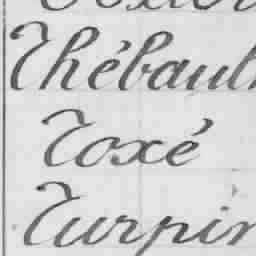 Thébault
Toxé
Turpin